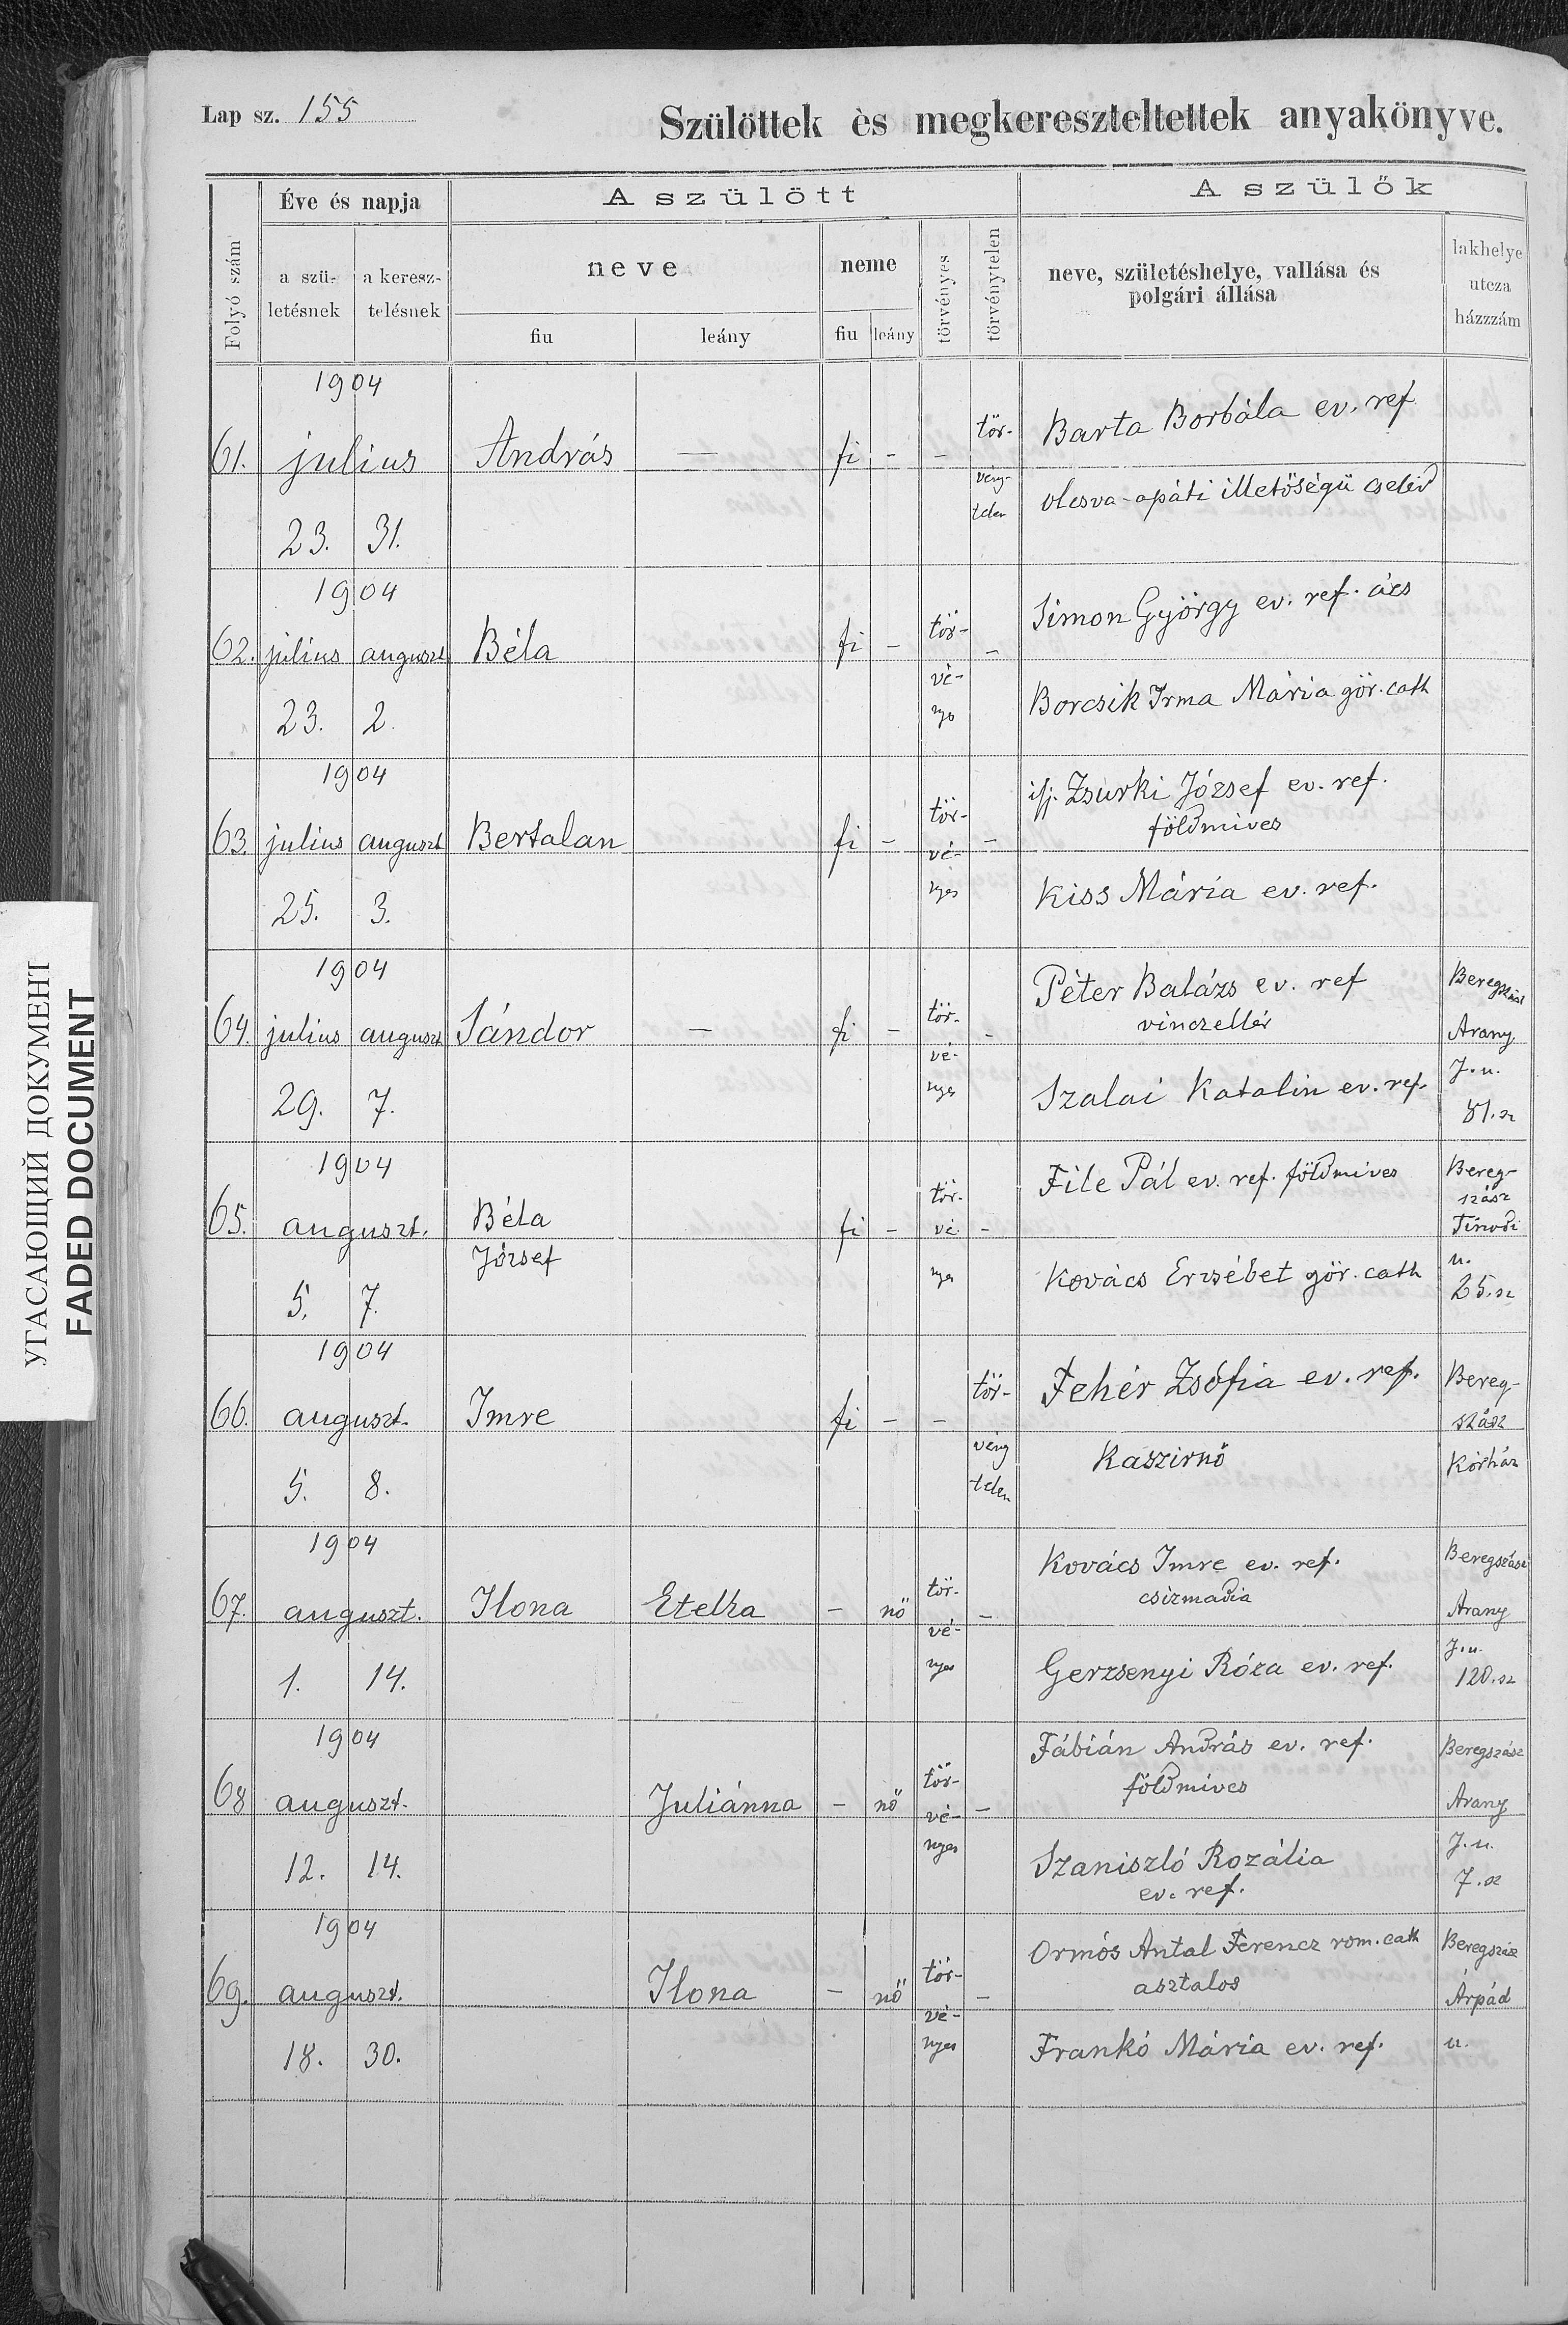 Lap sz. 155
Szülöttek ès megkereszteltettek anyakönyve.
Folyó szám
Éve és napja
A szülött
A szülők
a szü-
letésnek
a keresz-
telésnek
neve
fiu
leány
neme
fiu
leány
törvényes
törvénytelen
neve, születéshelye, vallása és
polgári állása
lakhelye
utcza
házzzám
1904
61. julius András — fi - - tör-
vény-
telen
23. 31.
Barta Borbála ev. ref
olcsva-apáti illetőségü cseléd
1904
62. julius auguszt Béla fi - tör- -
vé-
nyes
23. 2.
Simon György ev. ref. ács
Borcsik Irma Mária gör. cath
1904
63. julius auguszt Bertalan fi - tör- -
vé-
nyes
25. 3.
ifj. Zsurki József ev. ref.
földmives
Kiss Mária ev. ref.
1904
64. julius auguszt Sándor — fi - tör- -
vé-
nyes
29. 7.
Péter Balázs ev. ref
vinczellér
Szalai Katalin ev. ref.
Beregszász
Arany
J. u.
81. sz
1904
65. auguszt. Béla
József
fi - tör- -
vé
nyes
5. 7.
File Pál ev. ref. földmives
Kovács Erzsébet gör. cath
Bereg-
szász
Tinodi
u.
25. sz
1904
66. auguszt. Imre fi - - tör-
vény
telen
5. 8.
Fehér Zsófia ev. ref.
Kaszirnő
Bereg-
szász
Kórház
1904
67. auguszt. Ilona Etelka - nő tör- -
vé-
nyes
1. 14.
Kovács Imre ev. ref.
csizmadia
Gerzsenyi Róza ev. ref.
Beregszász
Arany
J. u.
120. sz
1904
68 auguszt. Juliánna - nő tör- -
vé-
nyes
12. 14.
Fábián András ev. ref.
földmives
Szaniszló Rozália
ev. ref.
Beregszász
Arany
J. u.
7. sz
1904
69. auguszt. Ilona - nő tör- -
vé-
nyes
18. 30.
Ormós Antal Ferencz rom. cath
asztalos
Frankó Mária ev. ref.
Beregszász
Árpád
u.
УГАСАЮЩИЙ ДОКУМЕНТ
FADED DOCUMENT